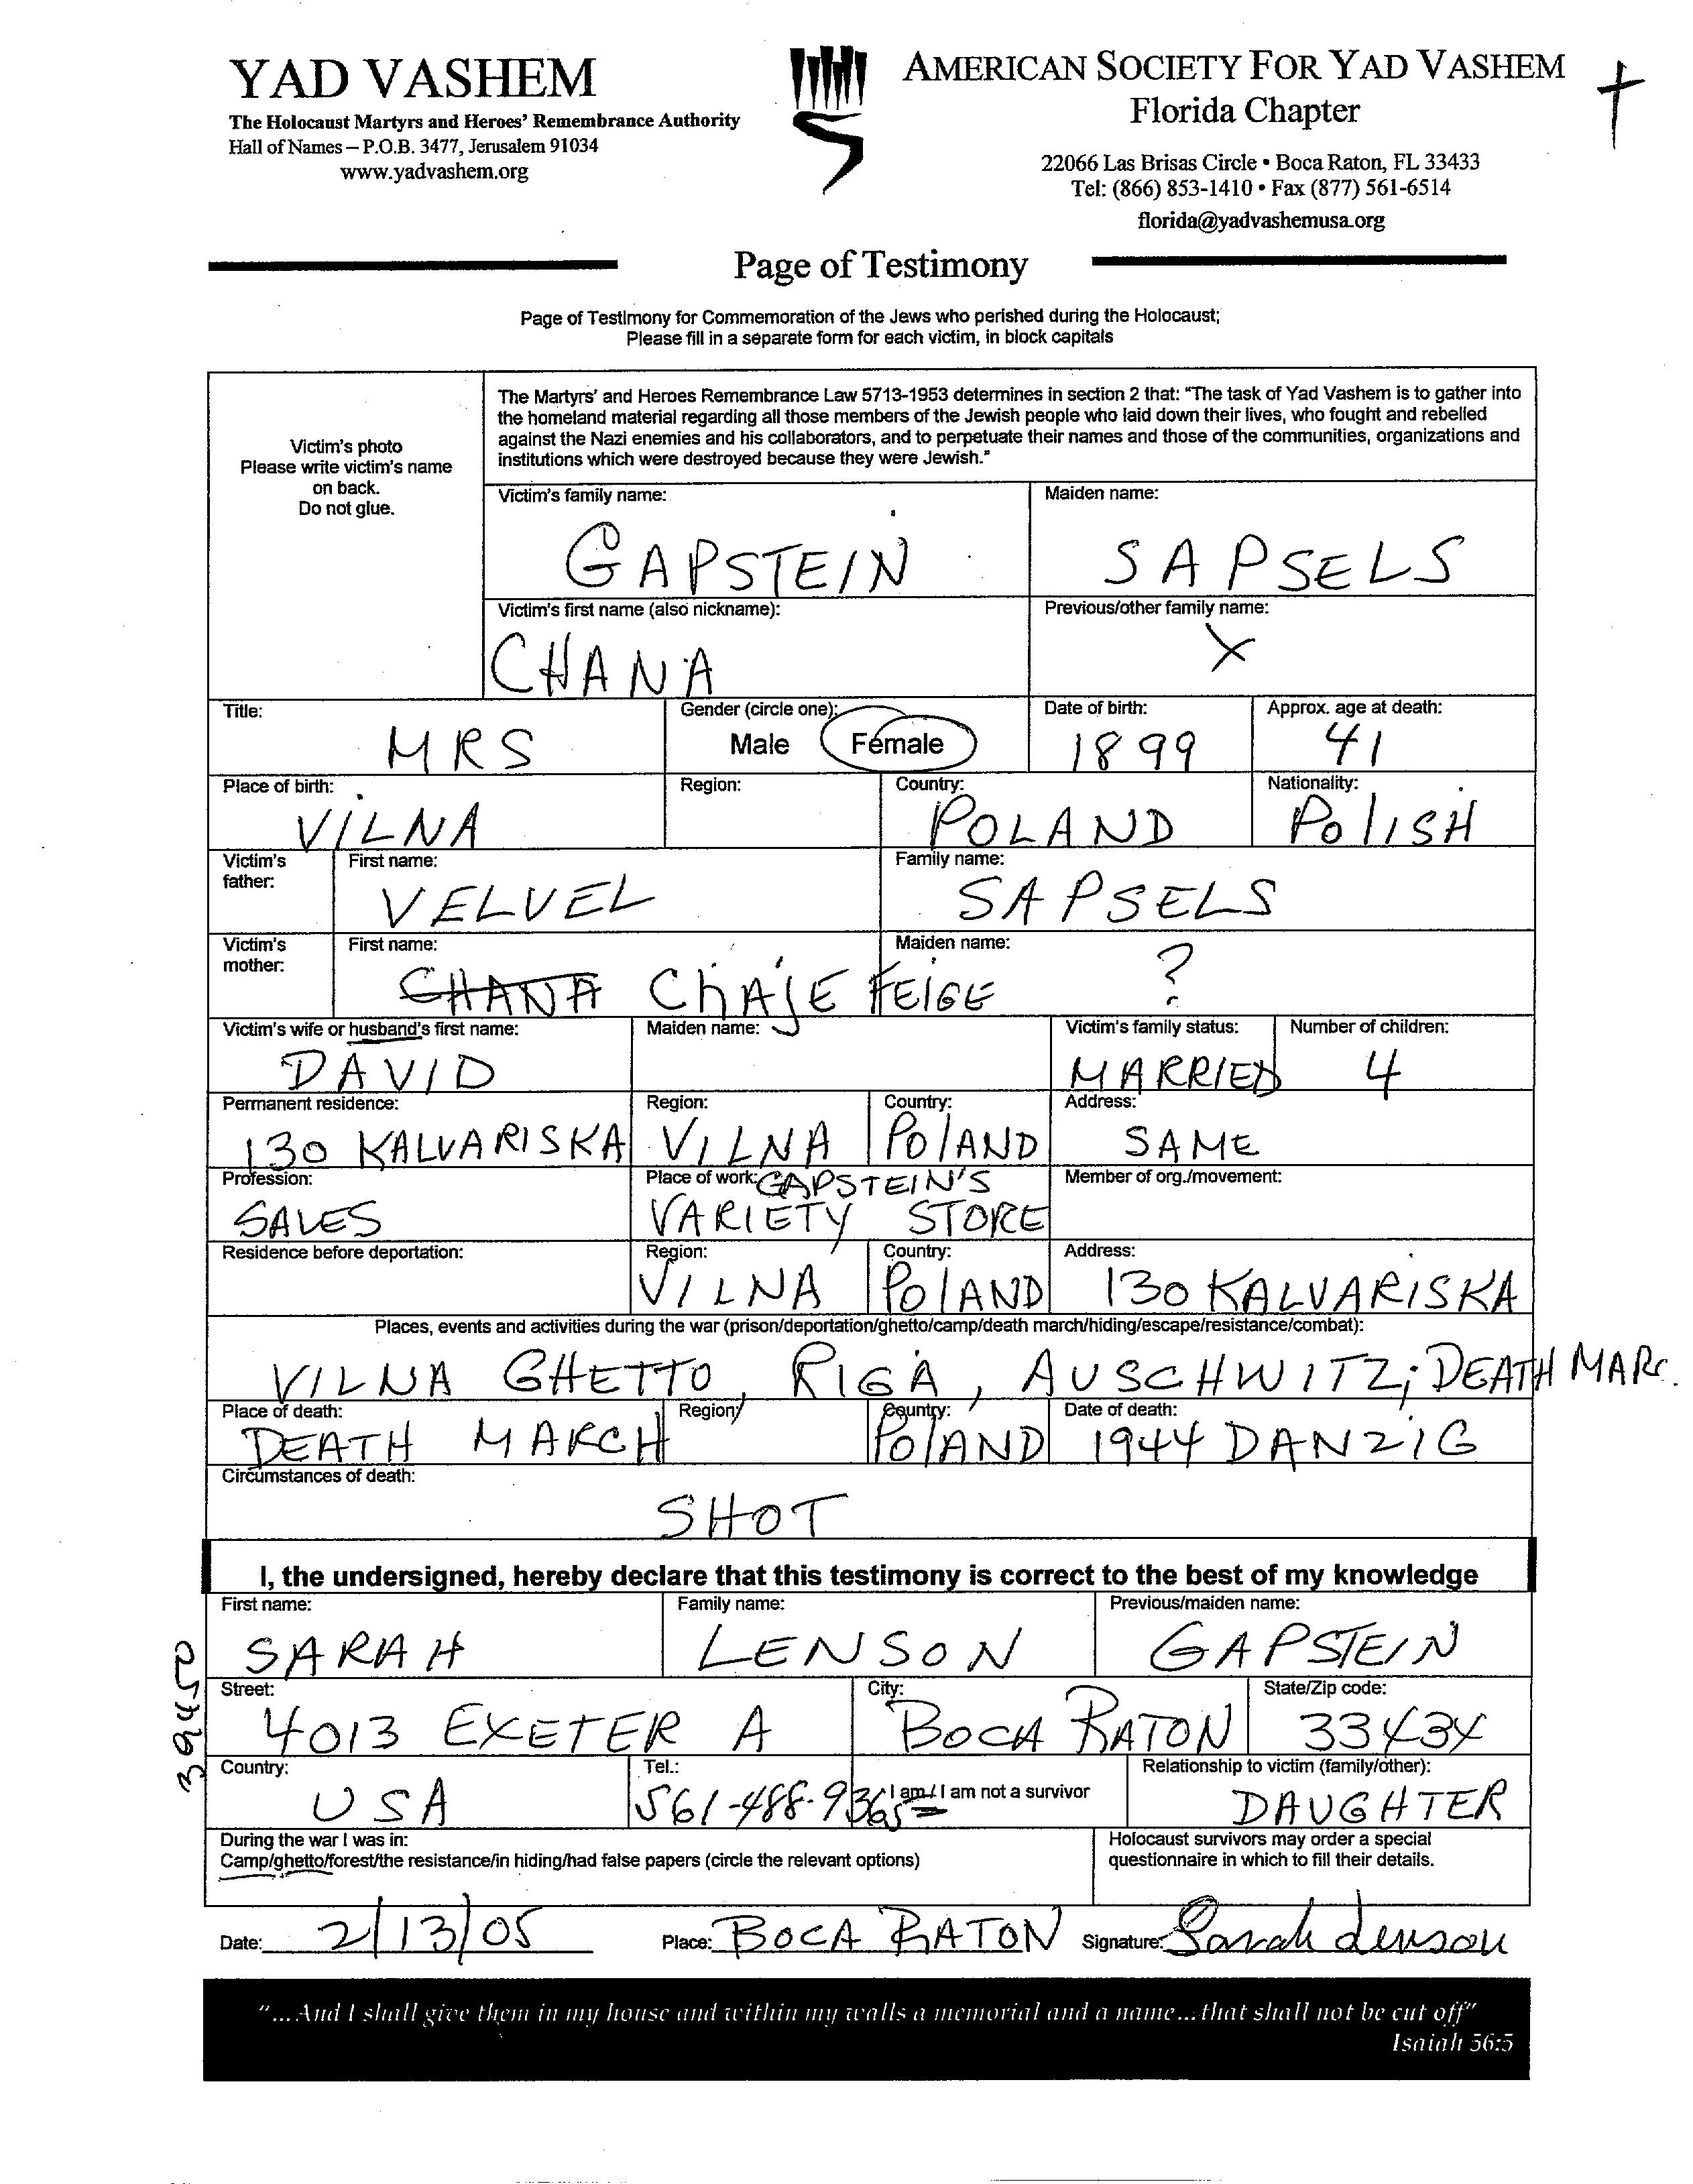 YAD VASHEM
The Holocaust Martyrs and Heroes' Remembrance Authority
Hall of Names – P.O.B. 3477, Jerusalem 91034
www.yadvashem.org
AMERICAN SOCIETY FOR YAD VASHEM
Florida Chapter
22066 Las Brisas Circle • Boca Raton, FL 33433
Tel: (866) 853-1410 • Fax (877) 561-6514
florida@yadvashemusa.org
Page of Testimony
Page of Testimony for Commemoration of the Jews who perished during the Holocaust;
Please fill in a separate form for each victim, in block capitals
Victim's photo
Please write victim's name
on back.
Do not glue.
The Martyrs' and Heroes Remembrance Law 5713-1953 determines in section 2 that: "The task of Yad Vashem is to gather into
the homeland material regarding all those members of the Jewish people who laid down their lives, who fought and rebelled
against the Nazi enemies and his collaborators, and to perpetuate their names and those of the communities, organizations and
institutions which were destroyed because they were Jewish."
Victim's family name: Maiden name:
GAPSTEIN SAPSELS
Victim's first name (also nickname): Previous/other family name:
CHANA X
Title: Gender (circle one): Date of birth: Approx. age at death:
MRS Male Female 1899 41
Place of birth: Region: Country: Nationality:
VILNA POLAND POlISH
Victim's father: First name: Family name:
VELVEL SAPSELS
Victim's mother: First name: Maiden name:
CHANA ChAjE FEIGE ?
Victim's wife or husband's first name: Maiden name: Victim's family status: Number of children:
DAVID MARRIED 4
Permanent residence: Region: Country: Address:
130 KALVARISKA VILNA POlAND SAME
Profession: Place of work: GAPSTEIN'S Member of org./movement:
SALES VARIETY STORE
Residence before deportation: Region: Country: Address:
VILNA POlAND 130 KALVARISKA
Places, events and activities during the war (prison/deportation/ghetto/camp/death march/hiding/escape/resistance/combat):
VILNA GHETTO, RIGA, AUSCHWITZ; DEATH MARC.
Place of death: Region: Country: Date of death:
DEATH MARCH POlAND 1944 DANZIG
Circumstances of death:
SHOT
I, the undersigned, hereby declare that this testimony is correct to the best of my knowledge
First name: Family name: Previous/maiden name:
SARAH LENSON GAPSTEIN
Street: City: State/Zip code:
4013 EXETER A BOCA RATON 33434
Country: Tel.: Relationship to victim (family/other):
USA 561-488-9365 I am / I am not a survivor DAUGHTER
During the war I was in:
Camp/ghetto/forest/the resistance/in hiding/had false papers (circle the relevant options)
Holocaust survivors may order a special
questionnaire in which to fill their details.
Date: 2/13/05 Place: BOCA RATON Signature: Sarah Lenson
"...And I shall give them in my house and within my walls a memorial and a name...that shall not be cut off"
Isaiah 56:5